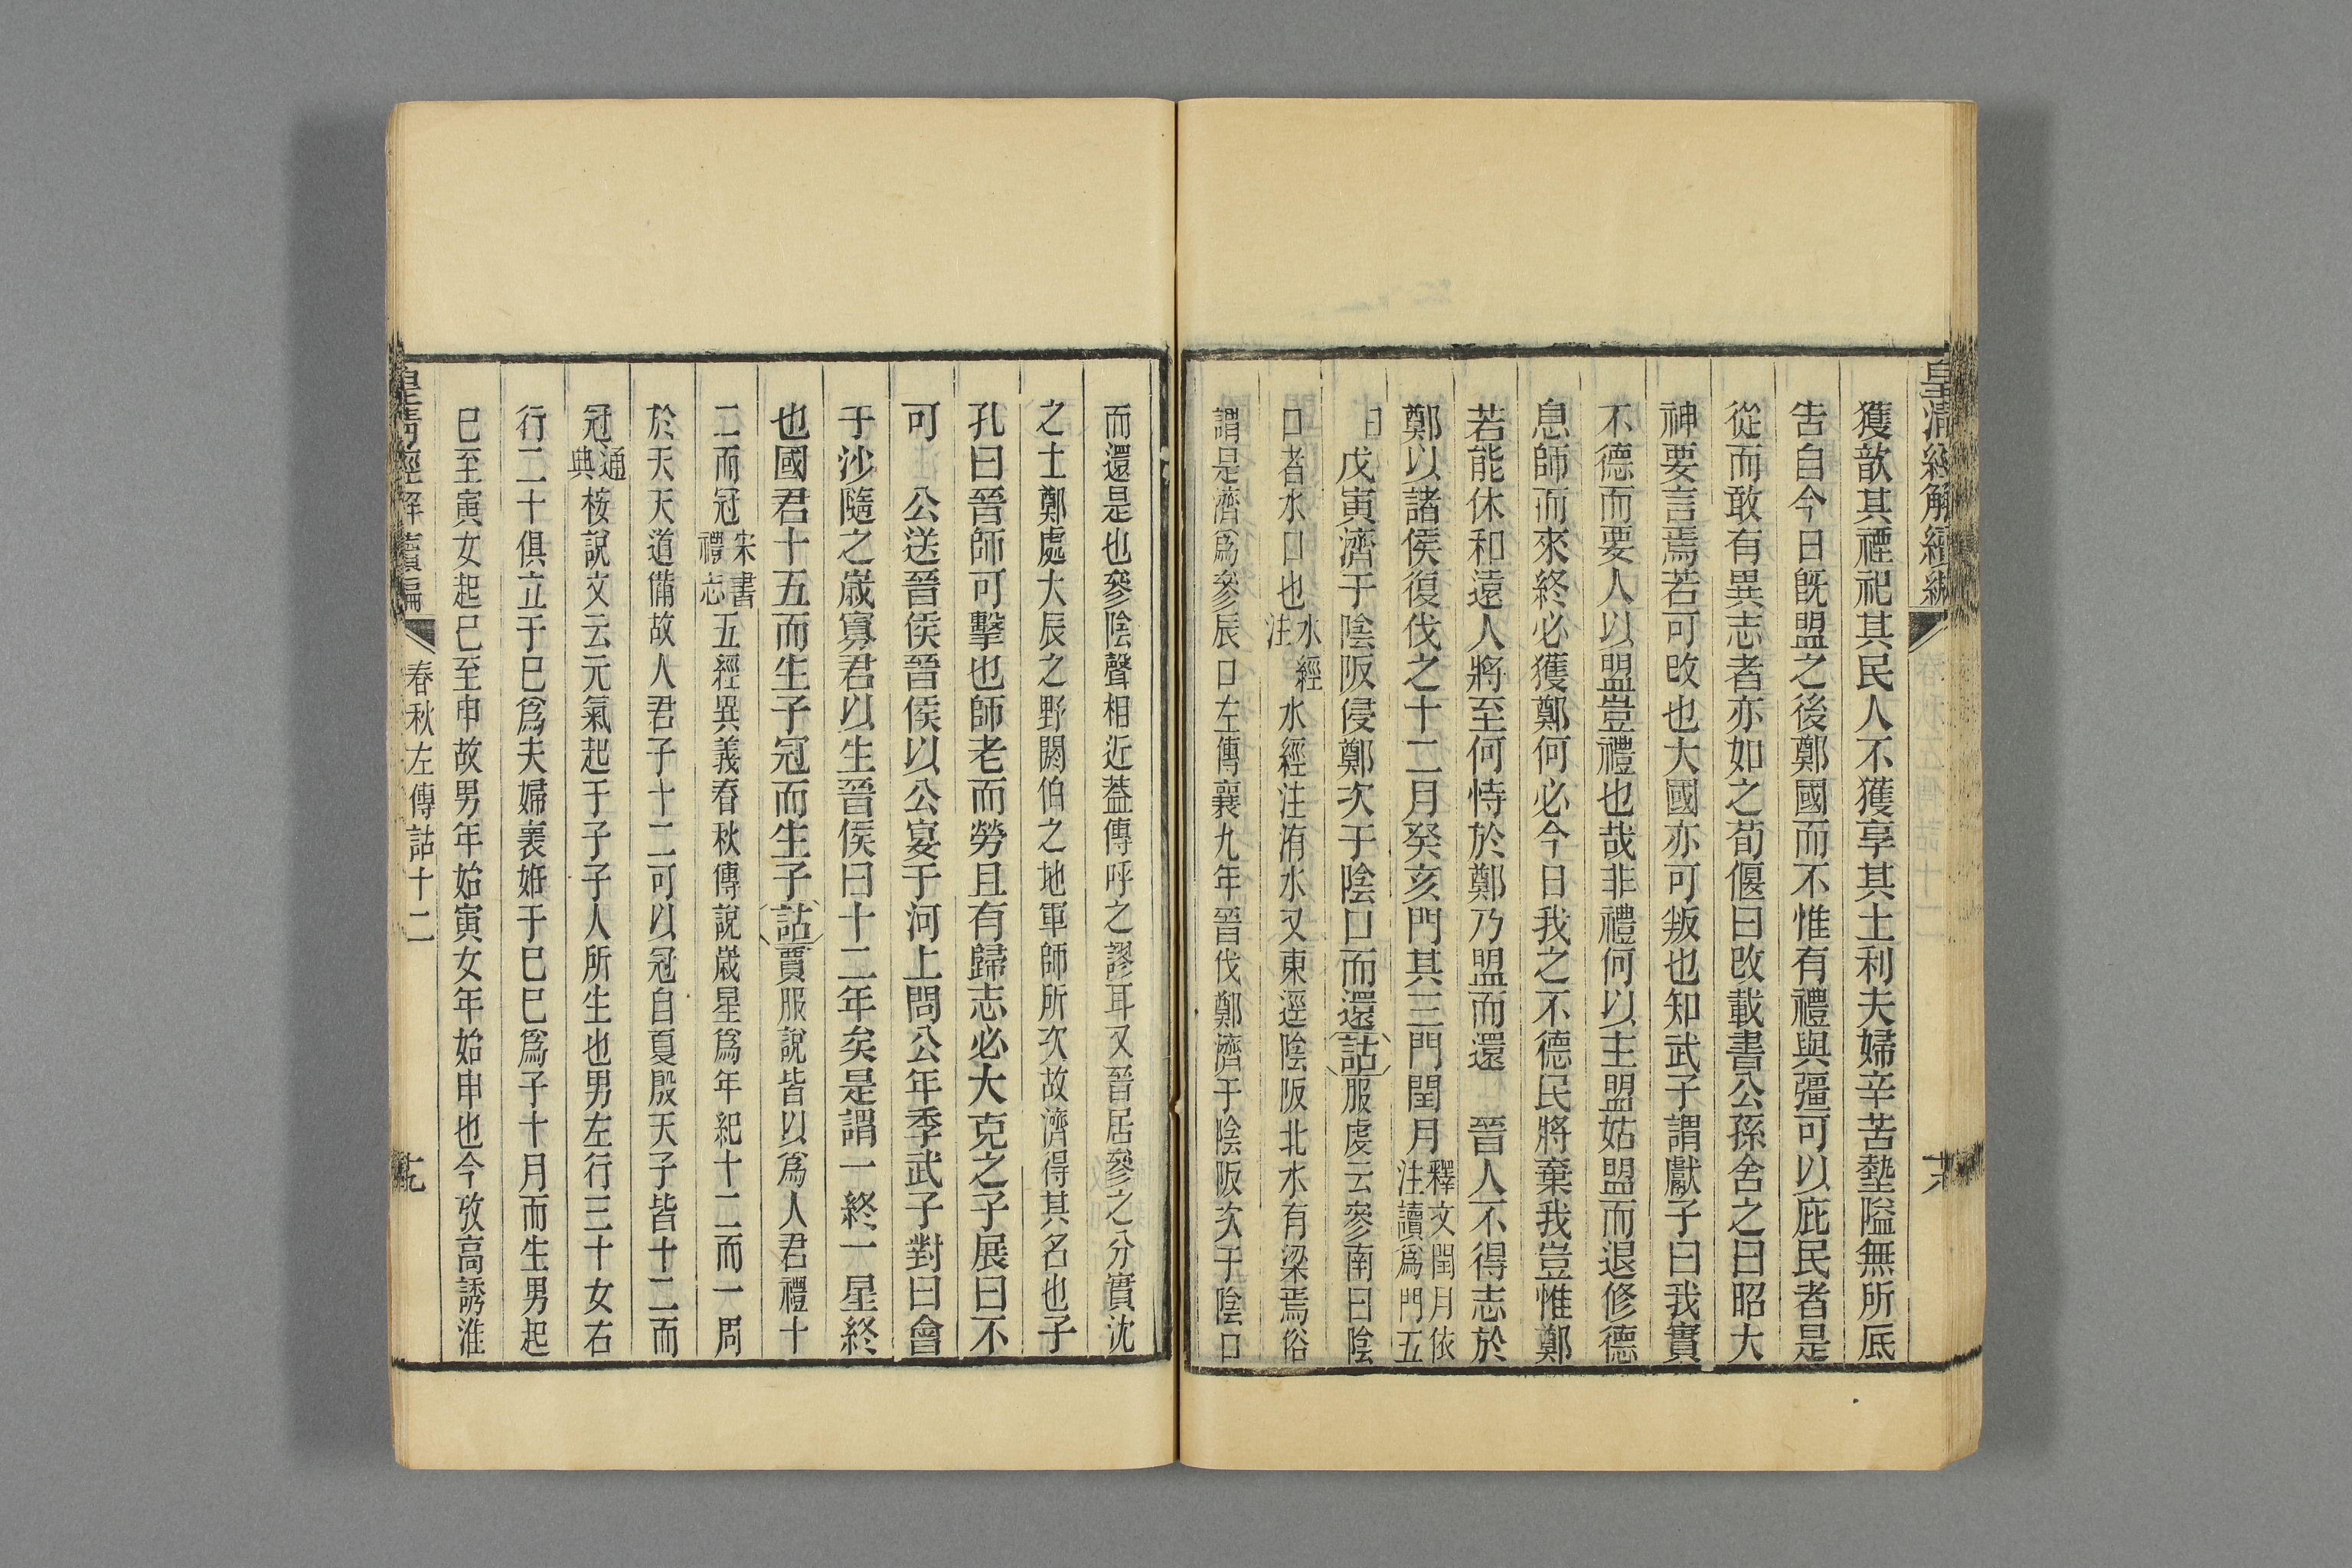 皇清經解續編
獲歆其禋祀其民人不獲享其土利夫婦辛苦墊隘無所底
告自今日旣盟之後鄭國而不惟有禮與彊可以庇民者是
從而敢有異志者亦如之荀偃曰改載書公孫舍之曰昭大
神要言焉若可改也大國亦可叛也知武子謂獻子曰我實
不德而要人以盟豈禮也哉非禮何以主盟姑盟而退修德
息師而來終必獲鄭何必今日我之不德民將棄我豈惟鄭
若能休和遠人將至何恃於鄭乃盟而還 晉人不得志於
鄭以諸侯復伐之十二月癸亥門其三門閏月釋文閏月依注讀爲門五
日戊寅濟于陰阪侵鄭次于陰口而還詁服虔云參南曰陰
口者水口也水經注水經注洧水又東逕陰阪北水有梁焉俗
謂是濟爲參辰口左傳襄九年晉伐鄭濟于陰阪次于陰口
而還是也參陰聲相近葢傳呼之謬耳又晉居參之分實沈
之土鄭處大辰之野閼伯之地軍師所次故濟得其名也子
孔曰晉師可擊也師老而勞且有歸志必大克之子展曰不
可 公送晉侯晉侯以公宴于河上問公年季武子對曰會
于沙隨之歲寡君以生晉侯曰十二年矣是謂一終一星終
也國君十五而生子冠而生子詁賈服說皆以爲人君禮十
二而冠宋書禮志五經異義春秋傳說歲星爲年紀十二而一周
於天天道備故人君子十二可以冠自夏殷天子皆十二而
冠通典桉說文云元氣起于子子人所生也男左行三十女右
行二十俱立于巳爲夫婦褱妊于巳巳爲子十月而生男起
巳至寅女起巳至申故男年始寅女年始申也今攷高誘淮
皇清經解續編
春秋左傳詁十二